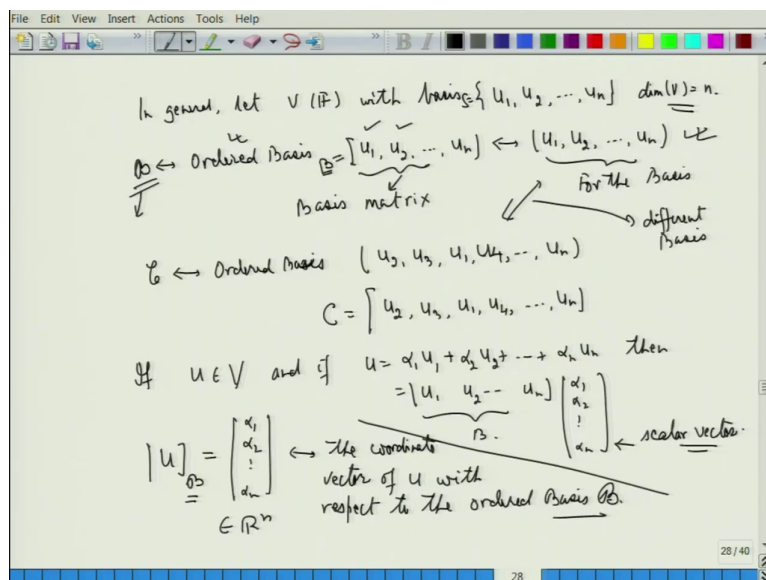 File Edit View Insert Actions Tools Help
In general, let V (F) with basis = { u1, u2, ..., un } dim(V) = n.
B ↔ Ordered Basis B = [u1, u2, ..., un] ↔ (u1, u2, ..., un)
Basis matrix
For the Basis
different Basis
C ↔ Ordered Basis (u2, u3, u1, u4, ..., un)
C = [u2, u3, u1, u4, ..., un]
If u ∈ V and if u = α1 u1 + α2 u2 + --- + αn un then
= [u1 u2 --- un] (α1 α2 ⋮ αn) ← scalar vector.
B.
[u]B = [α1 α2 ⋮ αn] ↔ the coordinate
vector of u with
respect to the ordered Basis B.
∈ R^n
28 / 40
28